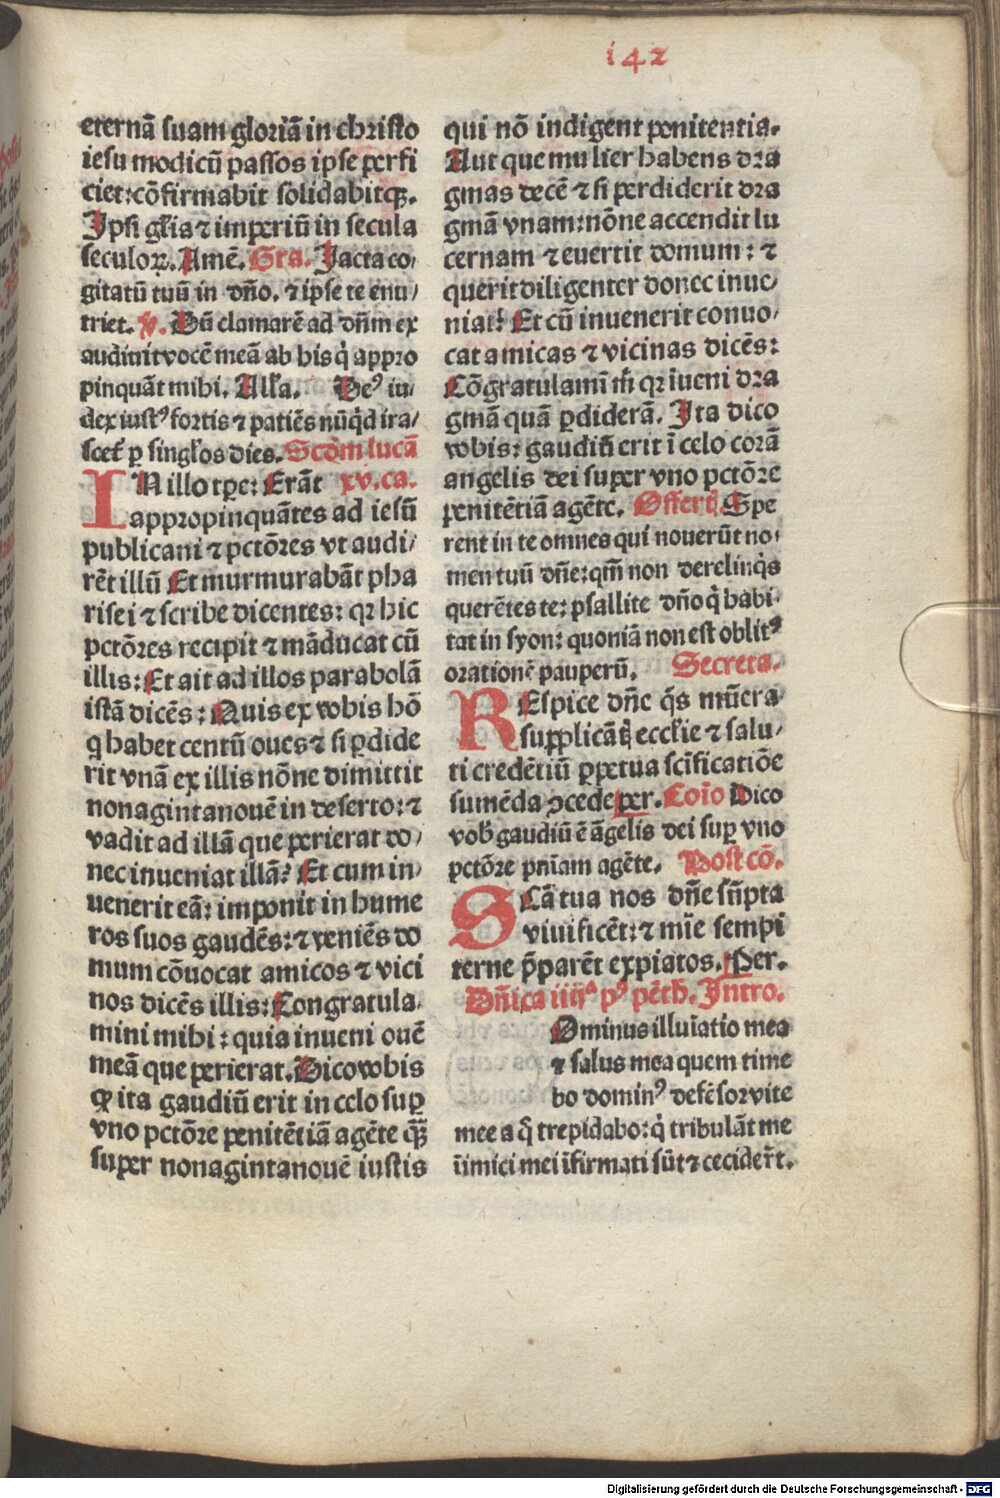 i42
eternā suam gloriā in christo
iesu modicū passos ipse perfi
ciet: cōfirmabit solidabitqꝫ.
Ipsi gl̄ia ⁊ imperiū in secula
seculoꝝ. Amē. Gra. Iacta co⸗
gitatū tuū in dn̄o. ⁊ ipse te enu⸗
triet. ꝟ. Dū clamarē ad dn̄m ex
audiuit vocē meā ab his q̇ appro
pinquāt mihi. All'a. Deꝰ iu⸗
dex iustꝰ fortis ⁊ patiēs nūq̇d ira⸗
scet᷑ ꝑ singl'os dies. Scd̄m lucā
IN illo tꝑe: Erāt xv. ca.
appropinquātes ad iesū
publicani ⁊ pctōres vt audi⸗
rēt illū Et murmurabāt pha
risei ⁊ scribe dicentes: qꝛ hic
pctōres recipit ⁊ māducat cū
illis: Et ait ad illos parabolā
istā dicēs: Quis ex vobis hō
q̇ habet centū oues ⁊ si ꝑdide
rit vnā ex illis nōne dimittit
nonagintanouē in deserto: ⁊
vadit ad illā que perierat do⸗
nec inueniat illā? Et cum in⸗
uenerit eā: imponit in hume
ros suos gaudēs: ⁊ veniēs do
mum cōuocat amicos ⁊ vici
nos dicēs illis: Congratula⸗
mini mihi: quia inueni ouē
meā que perierat. Dico vobis
ꝙ ita gaudiū erit in celo suꝑ
vno pctōre penitētiā agēte qꝫ̄
super nonagintanouē iustis
qui nō indigent penitentia.
Aut que mulier habens dra
gmas decē ⁊ si perdiderit dra
gmā vnam: nōne accendit lu
cernam ⁊ euertit domum: ⁊
querit diligenter donec inue⸗
niat? Et cū inuenerit conuo⸗
cat amicas ⁊ vicinas dicēs:
Cōgratulamī m̄ qꝛ īueni dra
gmā quā ꝑdiderā. Ita dico
vobis: gaudiū erit ī celo corā
angelis dei super vno pctōre
penitētiā agēte. Offert̄. Spe
rent in te omnes qui nouerūt no⸗
men tuū dn̄e: qm̄ non derelinq̇s
querētes te: psallite dn̄o q̇ habi⸗
tat in syon: quoniā non est oblitꝰ
orationē pauperū. Secreta.
REspice dn̄e q̄s mūera
supplicātꝭ eccl'ie ⁊ salu⸗
ti credētiū ꝑpetua scīficatiōe
sumēda ꝯcede ꝑer. Coīo Dico
vob̄ gaudiū ē āgelis dei suꝑ vno
pctōre pn̄iam agēte. Post cō.
SCā tua nos dn̄e sūpta
viuificēt: ⁊ mīe sempi
terne p̄parēt expiatos. Per.
Dn̄ica iiijᵃ pꝰ pēth. Intro.
Ominus illuīatio mea
⁊ salus mea quem time
bo dominꝰ defēsor vite
mee a q̊ trepidabo: q̇ tribulāt me
īimici mei īfirmati sūt ⁊ cecider̄t.
Digitalisierung gefördert durch die Deutsche Forschungsgemeinschaft - DFG